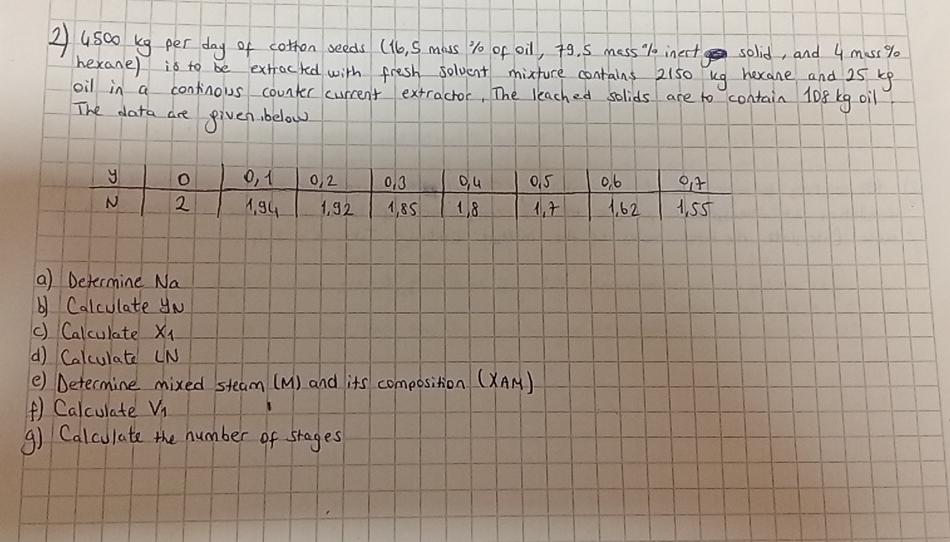 2) 4500 kg per day of cotton seeds (16,5 mass % of oil, 79.5 mass % inert solid, and 4 mass %
hexane) is to be extracted with fresh solvent mixture contains 2150 kg hexane and 25 kg
oil in a continous counter current extractor. The leached solids are to contain 108 kg oil.
The data are given below
y 0 0,1 0,2 0,3 0,4 0,5 0,6 0,7
N 2 1,94 1,92 1,85 1,8 1,7 1,62 1,55
a) Determine Na
b) Calculate yN
c) Calculate X1
d) Calculate LN
e) Determine mixed steam (M) and its composition (XAM)
f) Calculate V1
g) Calculate the number of stages